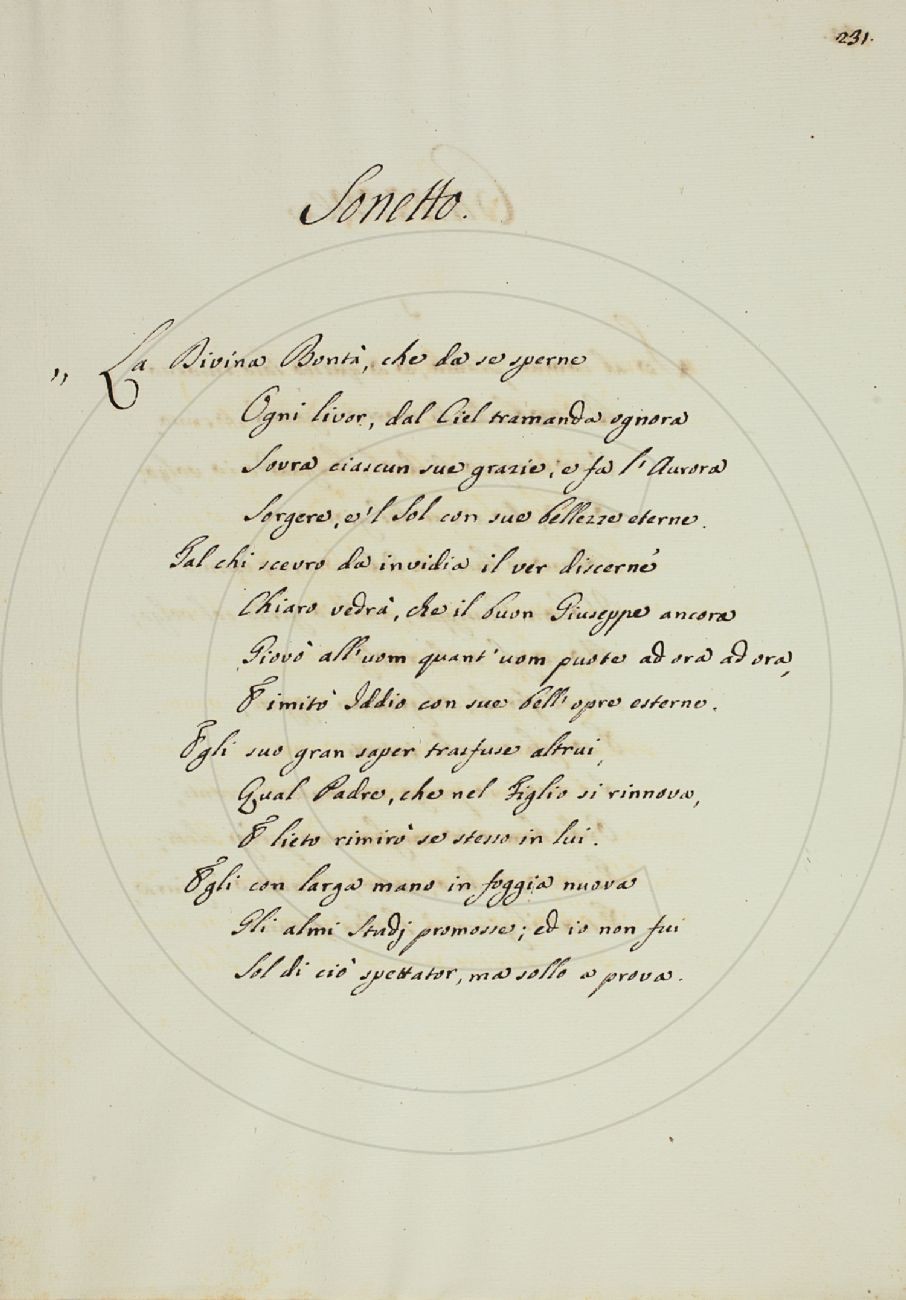 231.
Sonetto.
„ La Divina Bontà, che da se sperne
Ogni livor, dal Ciel tramanda ognora
Sovra ciascun sue grazie; e fa l'Aurora
Sorgere, e'l Sol con sue bellezze eterne.
Tal chi scevro da invidia il ver discerne
Chiaro vedrà, che il buon Giuseppe ancora
Giovò all'uom quant'uom puote ad ora ad ora,
E imitò Iddio con sue bell'opre esterne.
Egli suo gran saper trasfuse altrui,
Qual Padre, che nel Figlio si rinnova,
E lieto rimirò se stesso in lui.
Egli con larga mano in foggia nuova
Gli almi Studj promosse; ed io non fui
Sol di ciò spettator, ma sollo a prova.